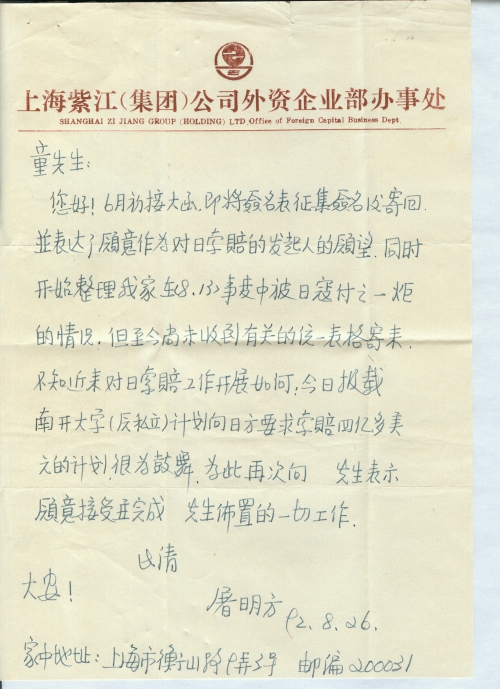 上海紫江(集团)公司外资企业部办事处
SHANGHAI ZI JIANG GROUP (HOLDING) LTD. Office of Foreign Capital Business Dept.
童先生:
您好!6月初接大函,即将簽名表征集簽名后寄回.
並表达了願意作为对日索賠的发起人的願望.同时
开始整理我家在8.13事变中被日寇付之一炬
的情况,但至今尚未收到有关的统一表格寄来.
不知近来对日索賠工作开展如何,今日报載
南开大学(原私立)计划向日方要求索賠四亿多美
元的计划,很为鼓舞,为此再次向 先生表示
願意接受並完成 先生佈置的一切工作.
此请
大安!
屠明方 92.8.26.
家中地址:上海市衡山路9弄3号 邮编200031